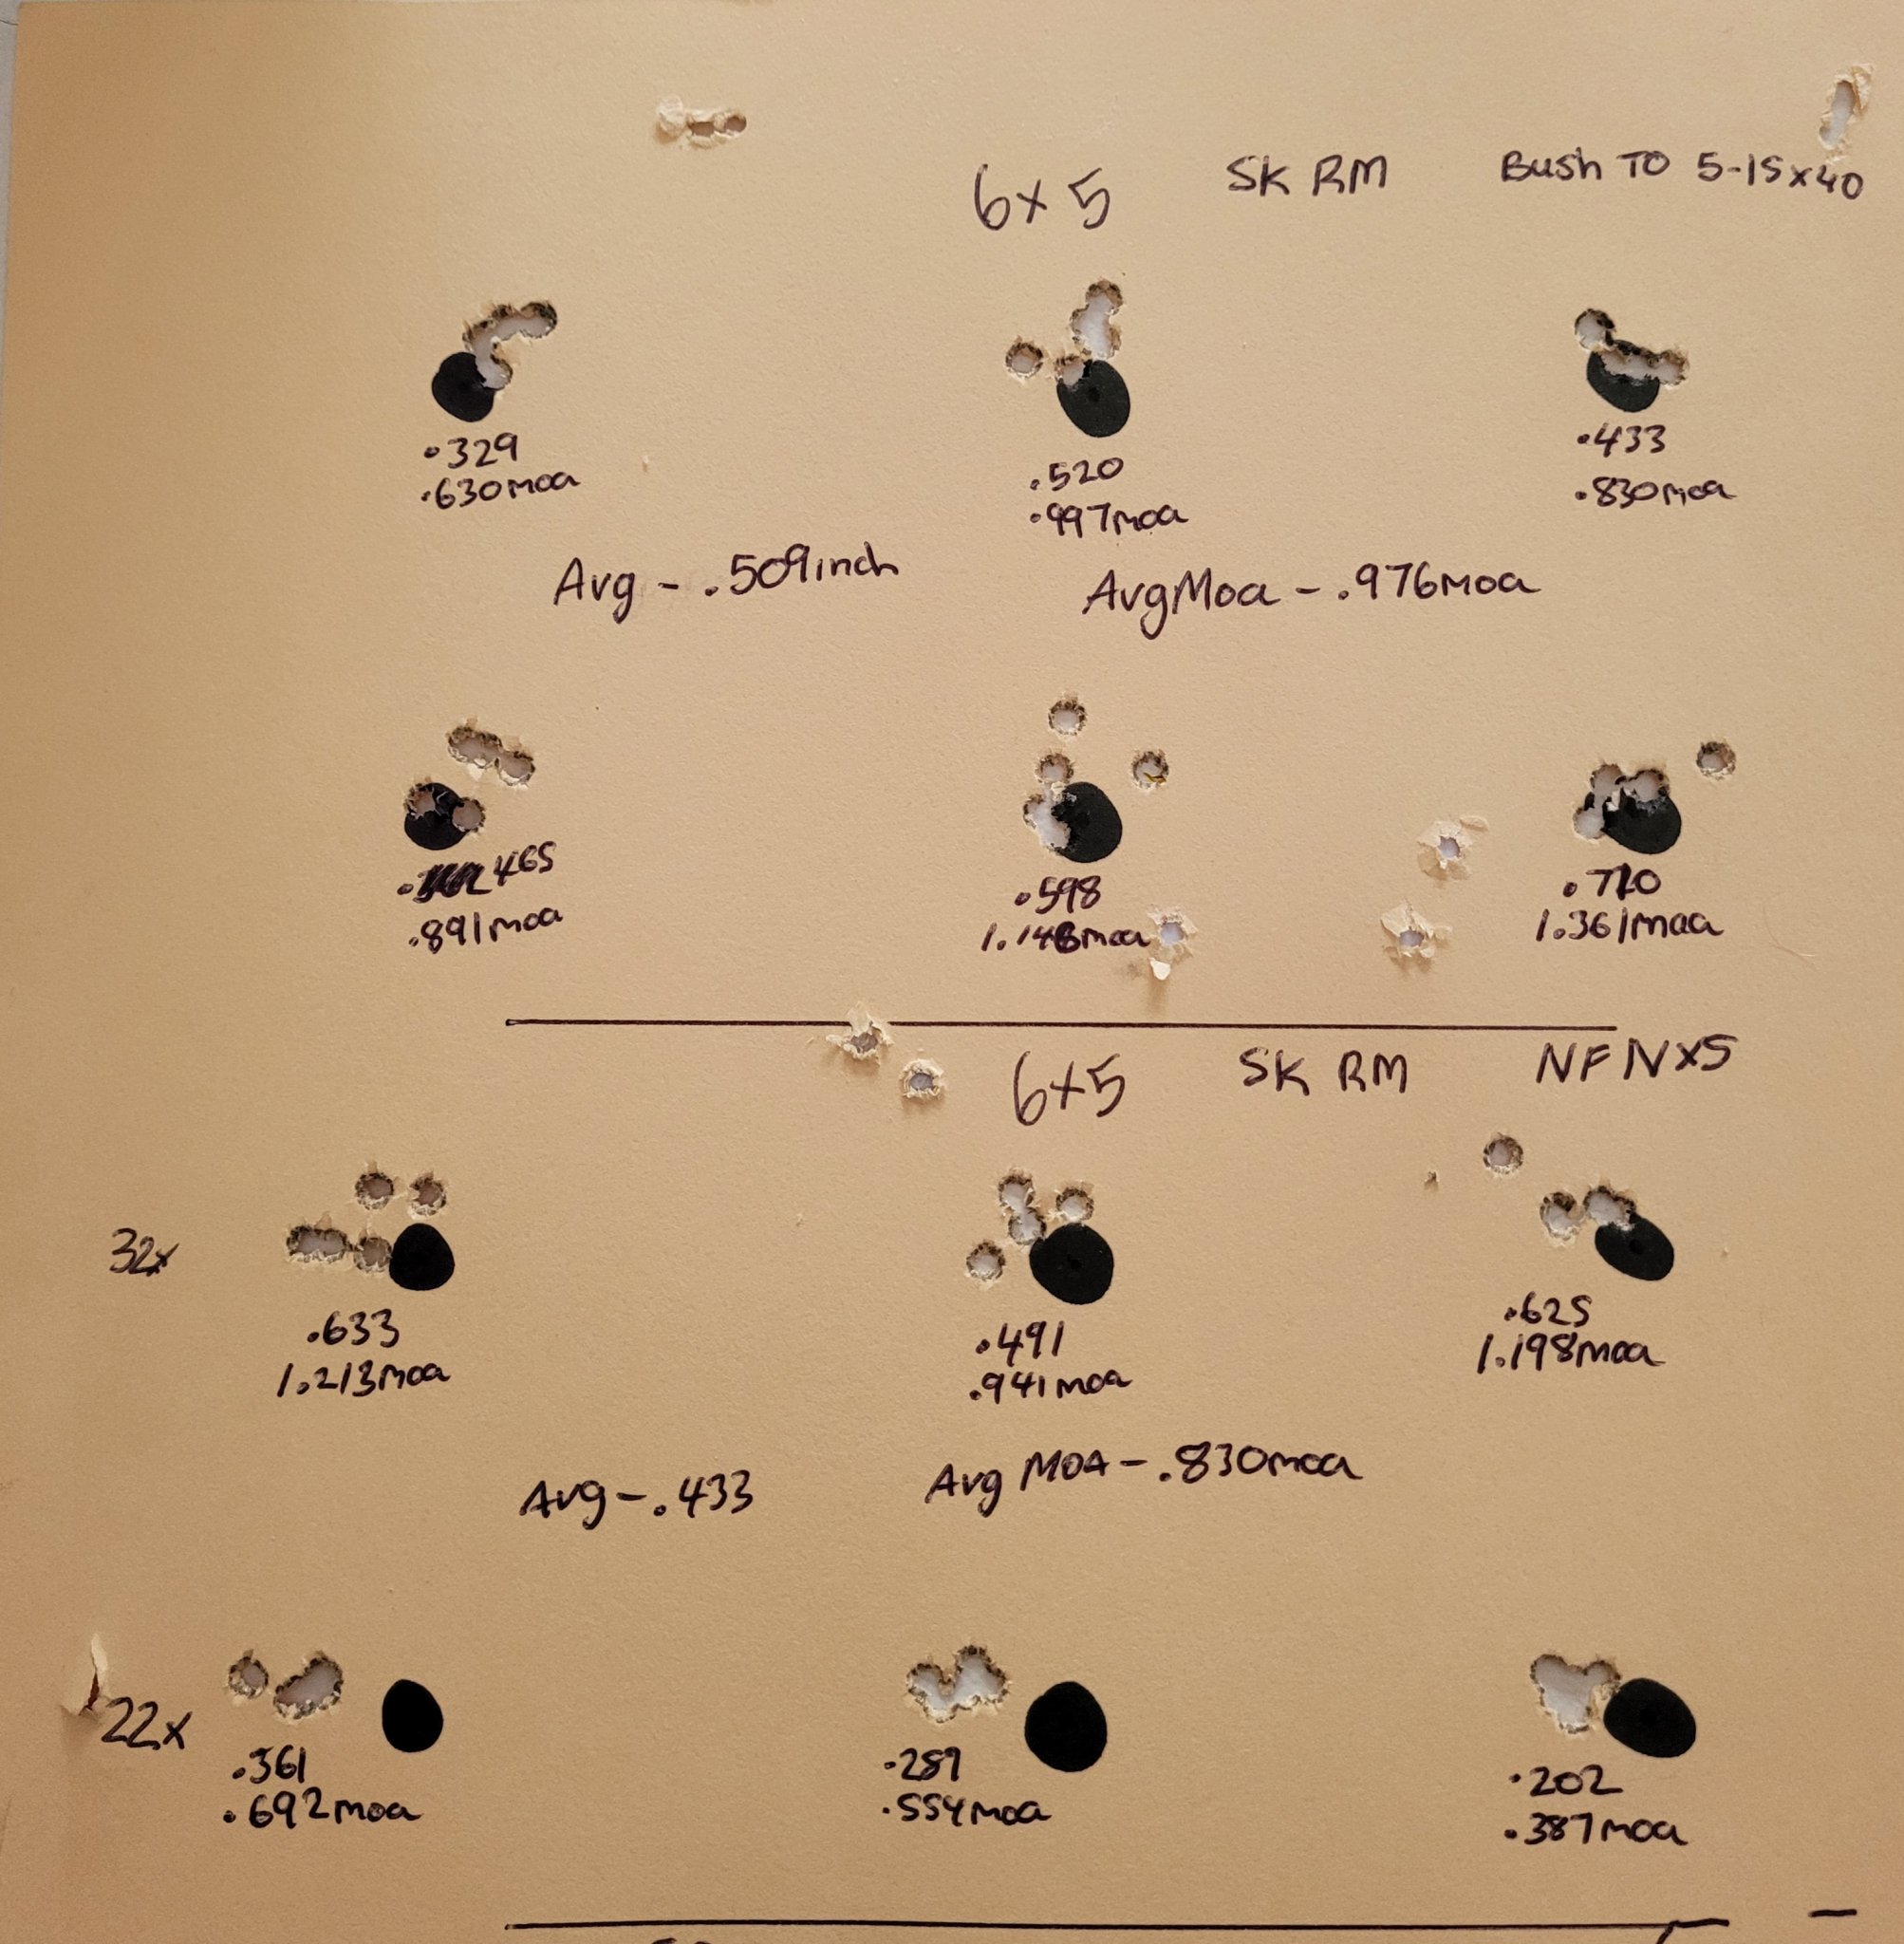 6x5 SK RM Bush TO 5-15x40
.329 .520 .433
.630moa .997moa .830moa
Avg - .509inch AvgMoa - .976moa
.465 .598 .710
.891moa 1.146moa 1.361moa
6x5 SK RM NF NXS
32x
.633 .491 .625
1.213moa .941moa 1.198moa
Avg - .433 Avg MOA - .830moa
22x
.361 .289 .202
.692moa .554moa .387moa